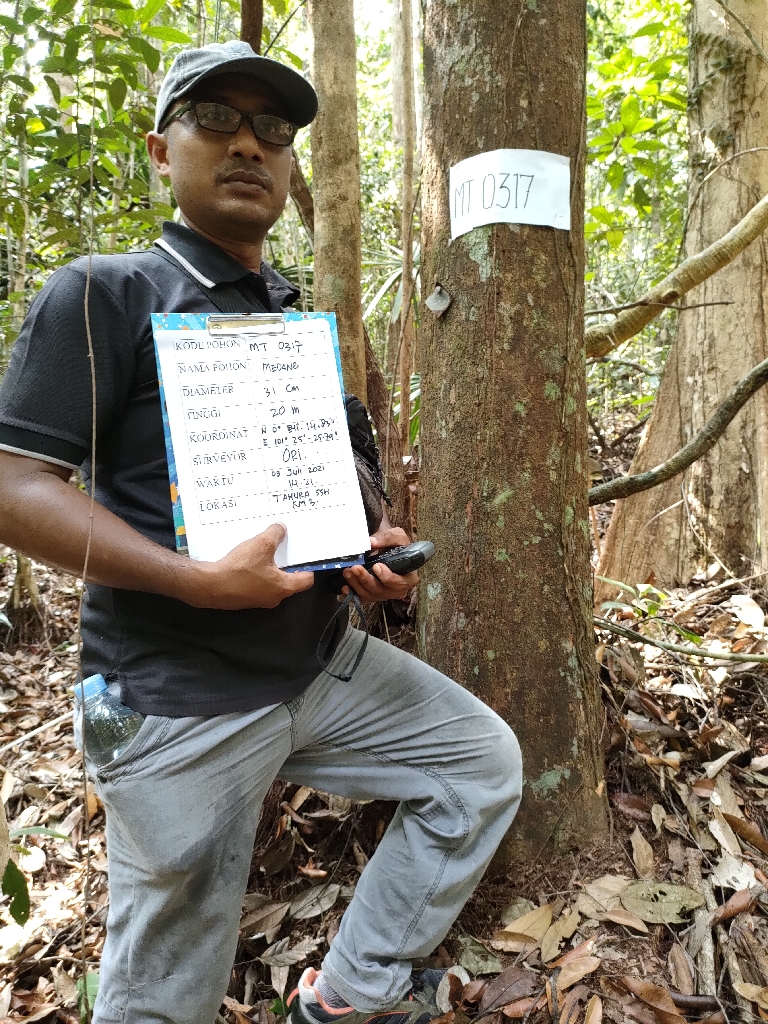 MT 0317
KODE POHON MT 0317
NAMA POHON MEDANG
DIAMETER 31 Cm
TINGGI 20 m
KOORDINAT N 0°
E 101° 25'
SURVEYOR ORI
WAKTU 05 Juli 2021
14.31
LOKASI TAHURA SSH
KM 3